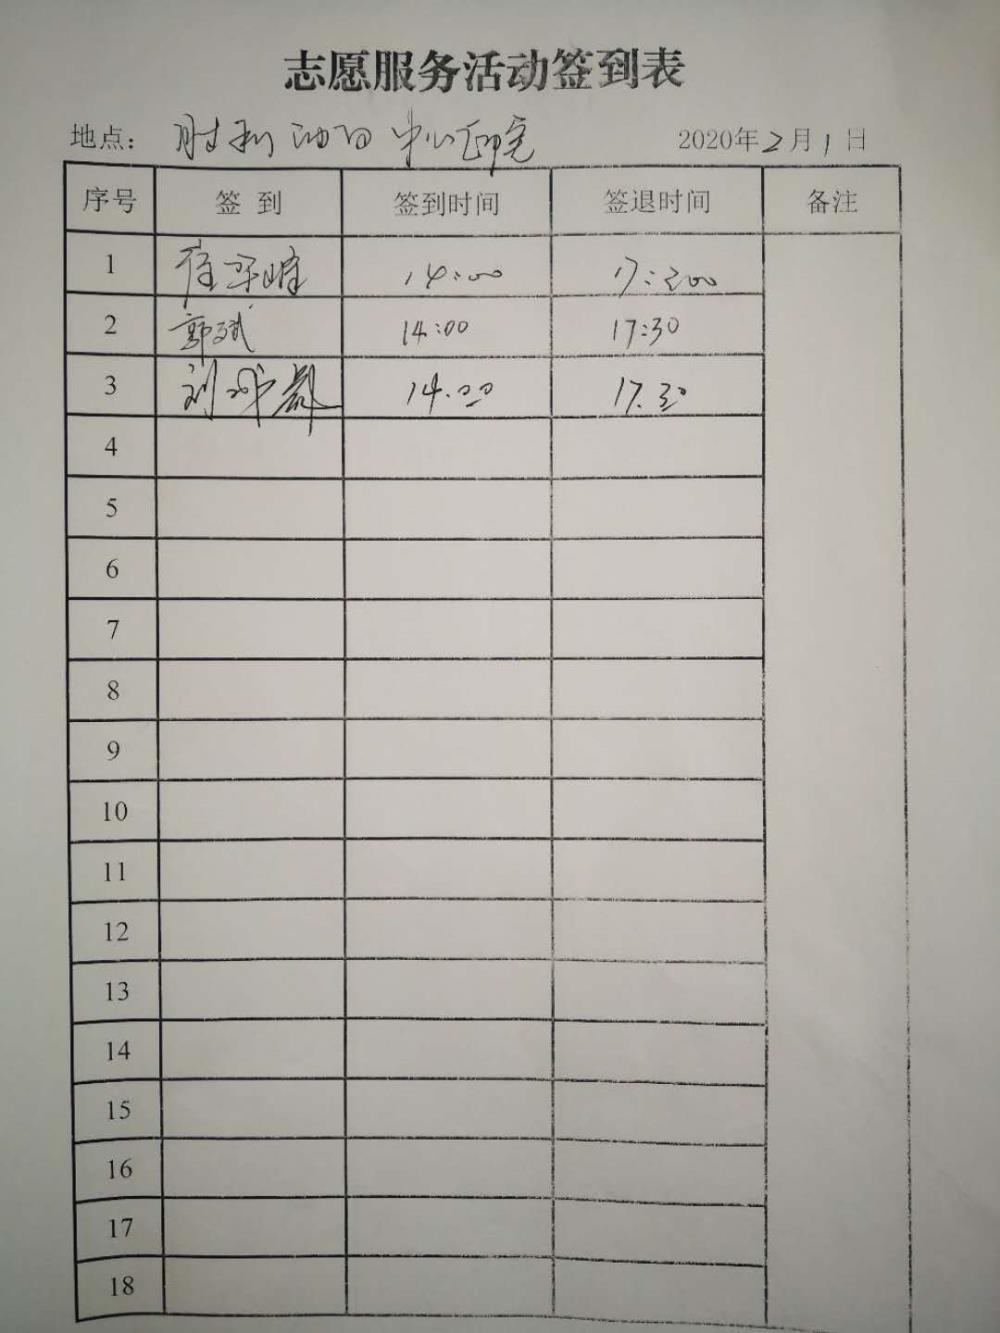 志愿服务活动签到表
地点: 胜利油田中心医院 2020年2月1日
序号 签到 签到时间 签退时间 备注
1 14:00
2 郭斌 14:00 17:30
3 刘 14.00 17.30
4
5
6
7
8
9
10
11
12
13
14
15
16
17
18